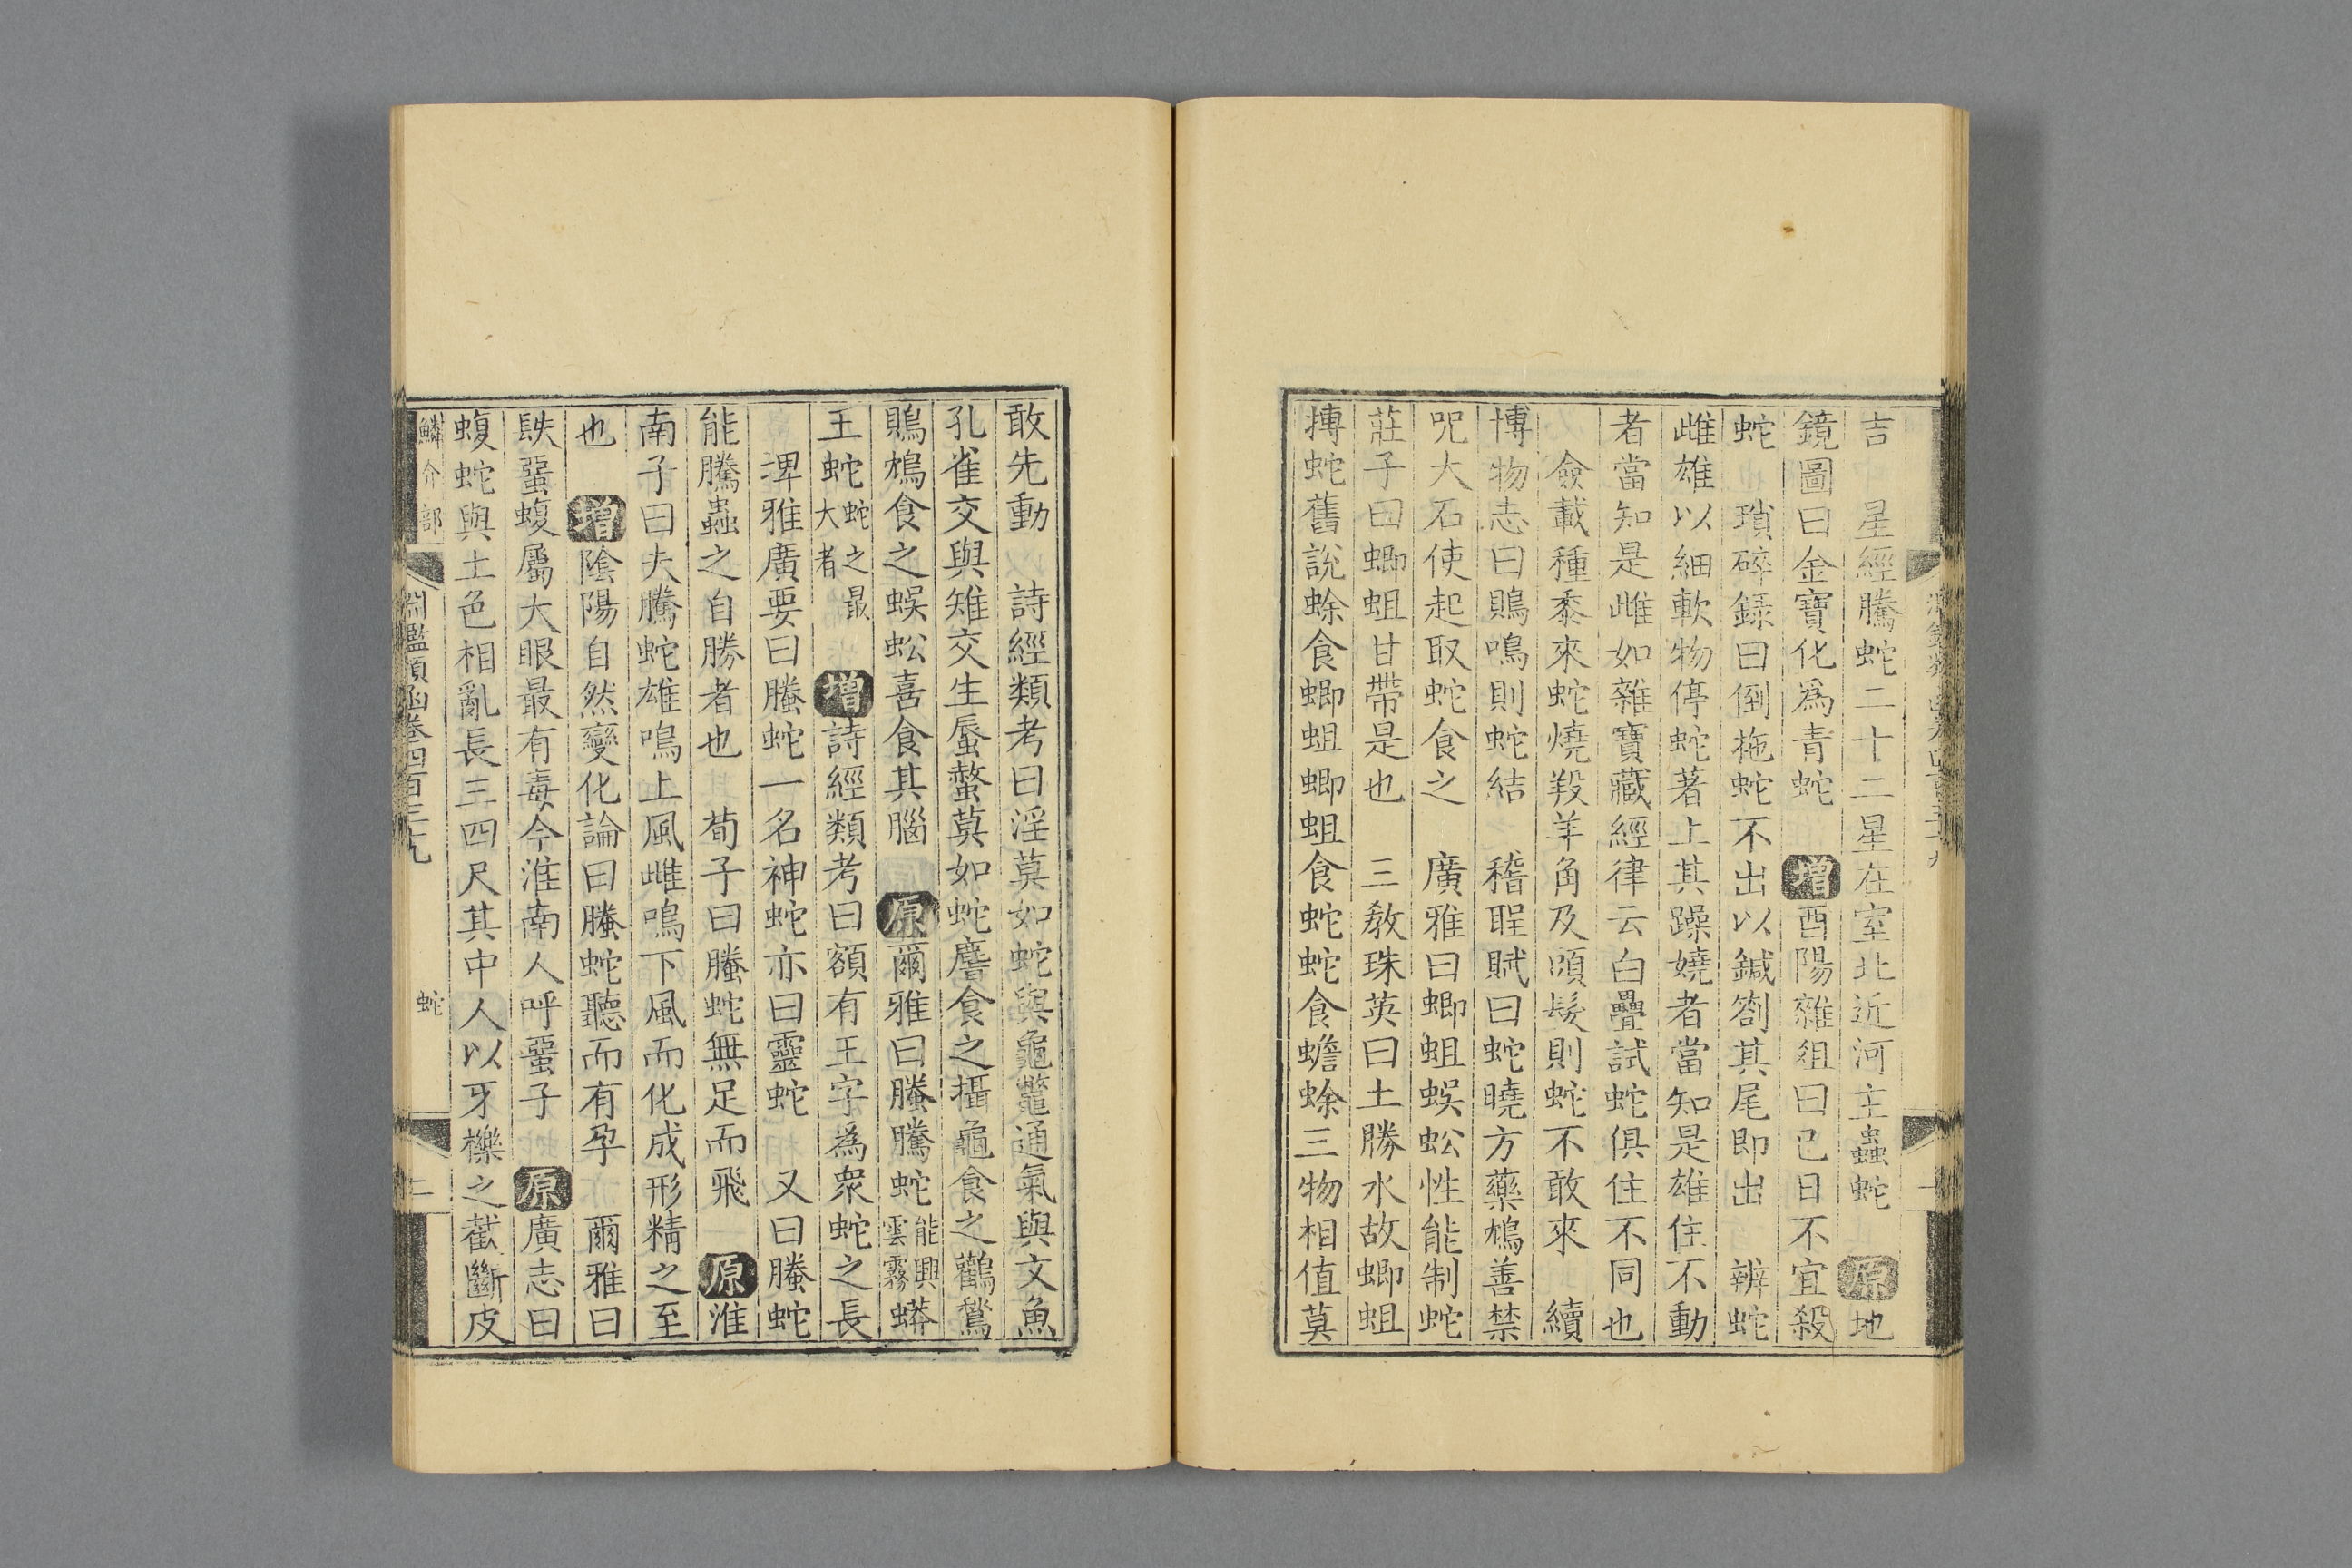 吉 星經騰蛇二十二星在室北近河主蟲蛇 原 地
鏡圖曰金寶化為青蛇 增 酉陽雜俎曰巳日不宜殺
蛇 瑣碎録曰倒拖蛇不出以鍼劄其尾即出 辨蛇
雌雄以細軟物停蛇著上其躁嬈者當知是雄住不動
者當知是雌如雜寶藏經律云白疊試蛇俱住不同也
僉載種黍來蛇燒羖羊角及頭髮則蛇不敢來 續
博物志曰鵙鳴則蛇結 稽聖賦曰蛇曉方藥鴆善禁
呪大石使起取蛇食之 廣雅曰蝍蛆蜈蚣性能制蛇
莊子曰蝍蛆甘帶是也 三教珠英曰土勝水故蝍蛆
搏蛇舊說蜍食蝍蛆蝍蛆食蛇蛇食蟾蜍三物相值莫
敢先動 詩經類考曰淫莫如蛇與龜鼈通氣與文魚
孔雀交與雉交生蜃螫莫如蛇麐食之攝龜食之鸛鶖
鵙鴆食之蜈蚣喜食其腦 原 爾雅曰螣騰蛇能興雲霧蟒
王蛇蛇之最大者 增 詩經類考曰額有王字為衆蛇之長
埤雅廣要曰螣蛇一名神蛇亦曰靈蛇 又曰螣蛇
能騰蟲之自勝者也 荀子曰螣蛇無足而飛 原 淮
南子曰夫騰蛇雄鳴上風雌鳴下風而化成形精之至
也 增 陰陽自然變化論曰螣蛇聽而有孕 爾雅曰
镻蝁蝮屬大眼最有毒今淮南人呼蝁子 原 廣志曰
蝮蛇與土色相亂長三四尺其中人以牙櫟之截斷皮
鱗介部 淵鑑類函卷四百三十九 蛇 二